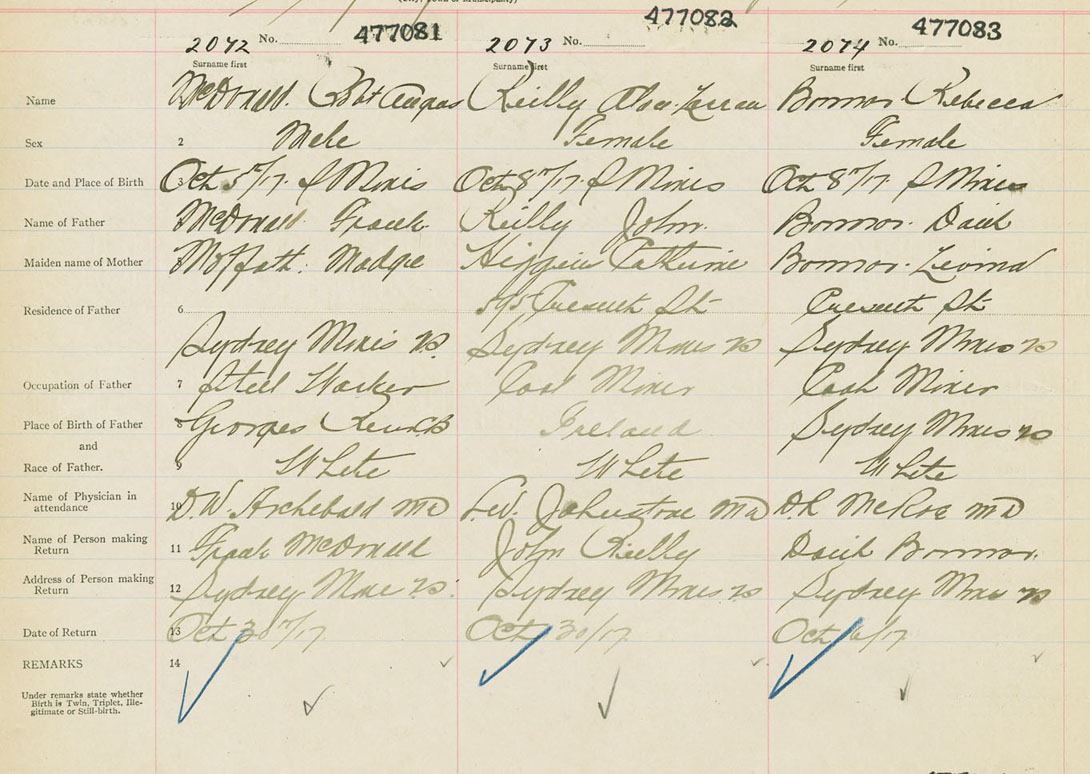 2072 No. 477081 2073 No. 477082 2074 No. 477083
Surname first Surname first Surname first
Name McDonald. Robt Angus Reilly Bonnar Rebecca
Sex 2 Mele Female Female
Date and Place of Birth 3 Oct 5th/17. S Mines Oct 8th/17. S Mines Oct 8th/17 S Mines
Name of Father McDonald Frank. Reilly John. Bonnar. David
Maiden name of Mother 5 Moffatt. Madge Higgins Catherine Bonnar.
Residence of Father 6 Cresenth St Cresenth St
Sydney Mines NS Sydney Mines NS Sydney Mines NS
Occupation of Father 7 Steel Worker Coal Miner Coal Miner
Place of Birth of Father 8 Georges River CB Ireland Sydney Mines NS
and
Race of Father. 9 White White White
Name of Physician in
attendance 10 D.W. Archebald MD Johnstone MD McRae MD
Name of Person making
Return 11 Frank McDonald John Rielly David Bonnar.
Address of Person making
Return 12 Sydney Mine NS. Sydney Mines NS Sydney Mines NS
Date of Return 13 Oct 30th/17 Oct 30/17 Oct 16/17
REMARKS 14
Under remarks state whether
Birth is Twin, Triplet, Ille-
gitimate or Still-birth.